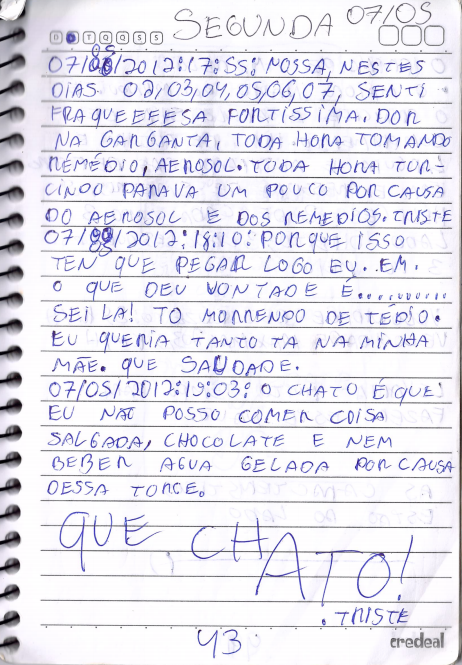 SEGUNDA 07/05
D S T Q Q S S
05
07/08/2012:17:55: NOSSA, NESTES
DIAS 02,03,04,05,06,07, SENTI
FRAQUEEEESA FORTISSIMA. DOR
NA GARGANTA, TODA HORA TOMANDO
REMÉDIO, AEROSOL. TODA HORA TUR-
CINDO PARAVA UM POUCO POR CAUSA
DO AEROSOL E DOS REMEDIOS. TRISTE
07/05/2012:18:10: PORQUE ISSO
TEN QUE PEGAR LOGO EU.. EM.
O QUE DEU VONTADE É..........
SEI LA! TO MORRENDO DE TÉDIO.
EU QUERIA TANTO TA NA MINHA
MÃE. QUE SAUDADE.
07/05/2012:19:03: O CHATO É QUE
EU NÃO POSSO COMER COISA
SALGADA, CHOCOLATE E NEM
BEBER AGUA GELADA POR CAUSA
DESSA TORCE.
QUE CHATO!
. TRISTE
43
credeal